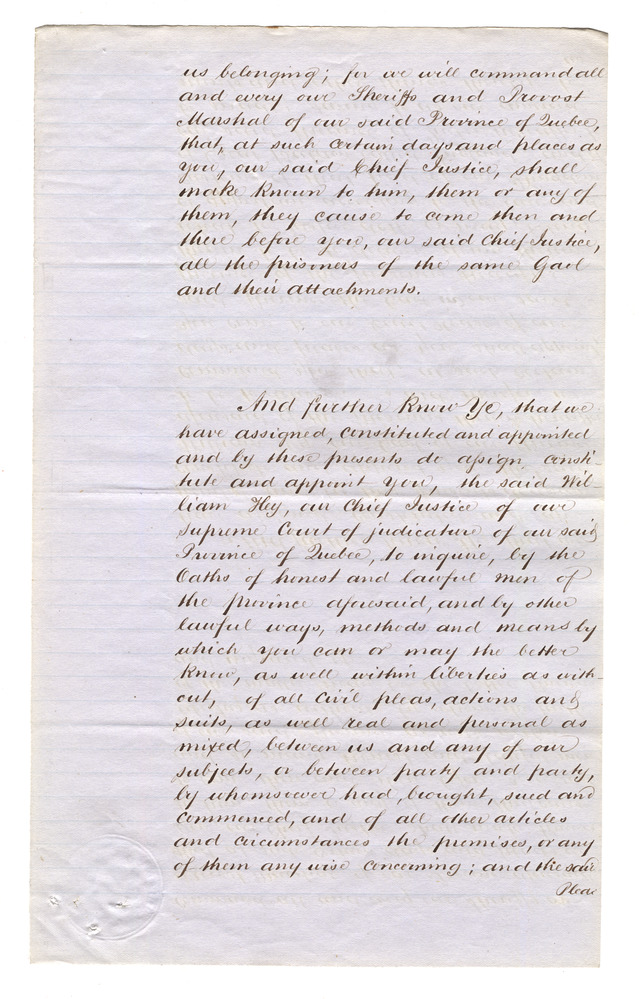 us belonging; for we will command all
and every our Sheriffs and Provost
Marshal of our said Province of Quebec,
that, at such certain days and places as
you, our said Chief Justice, shall
make known to him, them or any of
them, they cause to come then and
there before you, our said Chief Justice,
all the prisoners of the same Gaol
and their attachments.
And further Know Ye, that we
have assigned, constituted and appointed
and by these presents do assign, consti-
tute and appoint You, the said Wil
liam Hey, our Chief Justice of our
supreme Court of judicature of our said
Province of Quebec, to inquire, by the
Oaths of honest and lawful men of
the province aforesaid, and by other
lawful ways, methods and means by
which you can or may the better
Know, as well within liberties as with-
out, of all Civil pleas, actions and
suits, as well real and personal as
mixed, between us and any of our
subjects, or between party and party,
by whomsoever had, brought, sued and
Commenced, and of all other articles
and circumstances the premises, or any
of them any wise concerning; and the said
Pleas